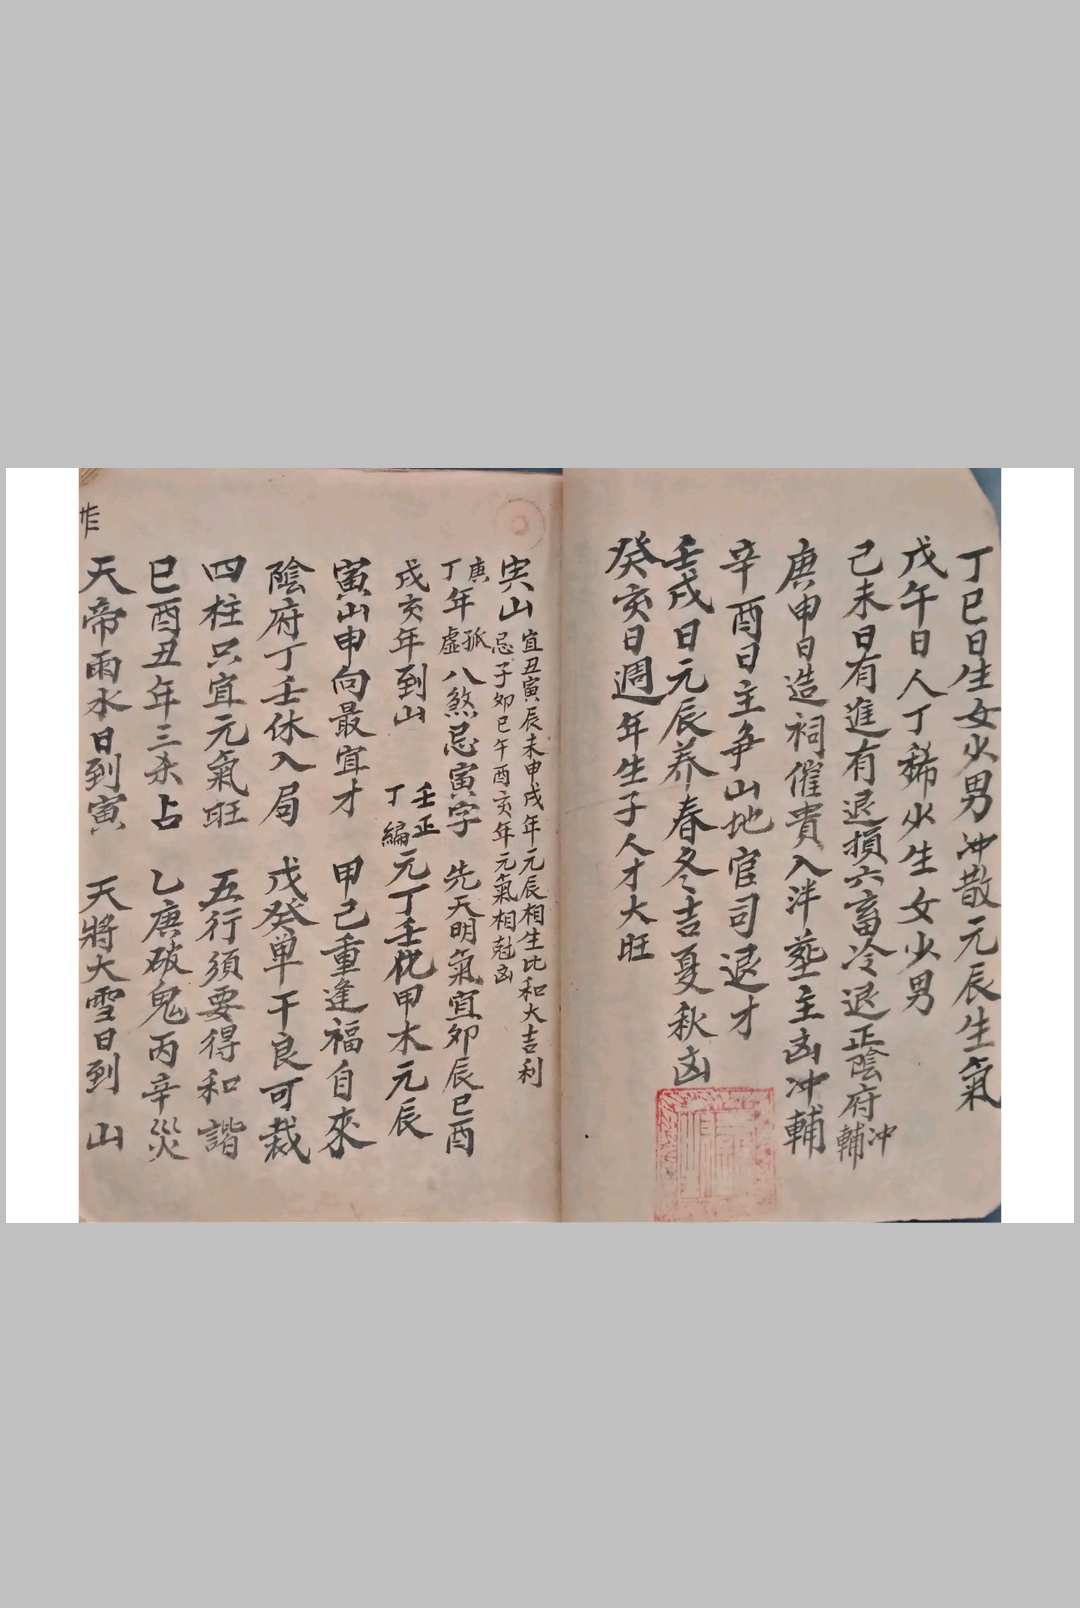 丁巳日生女少男冲散元辰生氣
戊午日人丁稀少生女少男
己未日有進有退損六畜冷退正陰府冲輔
庚申日造祠催貴入泮塟主凶冲輔
辛酉日主爭山地官司退才
壬戌日元辰养春冬吉夏秋凶
癸亥日週年生子人才大旺
寅山 宜丑寅辰未申戌年元辰相生比和大吉利
忌子卯巳午酉亥年元氣相尅凶
庚丁年孤虛 八煞忌寅字 先天明氣宜卯辰巳酉
戌亥年到山 壬正丁編 元丁壬化甲木元辰
寅山申向最宜才 甲己重逢福自來
陰府丁壬休入局 戊癸単干良可裁
四柱只宜元氣旺 五行須要得和諧
巳酉丑年三杀占 乙庚破鬼丙辛災
天帝雨水日到寅 天將大雪日到山